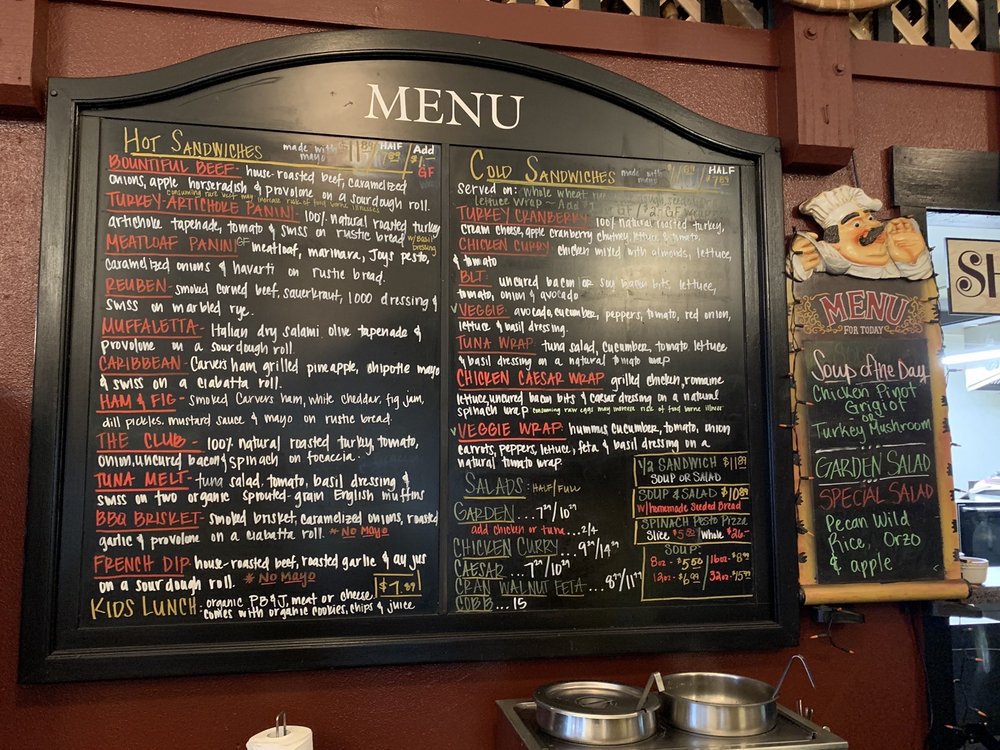 MENU
HOT SANDWICHES made with mayo HALF Add GF
BOUNTIFUL BEEF- house-roasted beef, caramelized
onions, apple horseradish & provolone on a sourdough roll.
consuming rare beef may increase risk of food borne illnesses
TURKEY-ARTICHOKE PANINI- 100% natural roasted turkey
artichoke tapenade, tomato & swiss on rustic bread w/Basil dressing
MEATLOAF PANINI GF meatloaf, marinara, Joys pesto,
caramelized onions & havarti on rustic bread.
REUBEN- smoked corned beef, sauerkraut, 1000 dressing &
swiss on marbled rye.
MUFFALETTA- Italian dry salami olive tapenade &
provolone on a sourdough roll
CARIBBEAN- Carvers ham grilled pineapple, chipotle mayo
& swiss on a ciabatta roll.
HAM & FIG- smoked carvers ham, white cheddar, fig jam,
dill pickles, mustard sauce & mayo on rustic bread.
THE CLUB- 100% natural roasted turkey, tomato,
onion, uncured bacon & spinach on focaccia.
TUNA MELT- tuna salad, tomato, basil dressing &
swiss on two organic sprouted-grain English muffins
BBQ BRISKET- smoked brisket, caramelized onions, roasted
garlic & provolone on a ciabatta roll. *NO MAYO
FRENCH DIP- house-roasted beef, roasted garlic & au jus
on a sourdough roll. *NO MAYO
$7.89
KIDS LUNCH- organic PB&J, meat or cheese
comes with organic cookies, chips & juice
COLD SANDWICHES made with mayo HALF
served on: whole wheat
lettuce wrap ~ Add
TURKEY CRANBERRY- 100% natural roasted turkey,
cream cheese, apple cranberry chutney, lettuce & tomato.
CHICKEN CURRY- chicken mixed with almonds, lettuce,
& tomato
BLT- uncured bacon or soy bacon bits lettuce,
tomato, onion & avocado
✓ VEGGIE- avocado, cucumber, peppers, tomato, red onion,
lettuce & basil dressing.
TUNA WRAP- tuna salad, cucumber, tomato lettuce
& basil dressing on a natural tomato wrap
CHICKEN CAESAR WRAP grilled chicken, romaine
lettuce, uncured bacon bits & caesar dressing on a natural
spinach wrap consuming raw eggs may increase risk of food borne illness
✓ VEGGIE WRAP- hummus, cucumber, tomato, onion
carrots, peppers, lettuce, feta & basil dressing on a
natural tomato wrap.
SALADS: HALF/FULL
GARDEN...7.29/10.29
add chicken or tuna...2/4
CHICKEN CURRY...
CAESAR...
CRAN WALNUT FETA...
COBB...15
1/2 SANDWICH $11.89
SOUP OR SALAD
SOUP & SALAD $10.89
w/homemade Seeded Bread
SPINACH Pesto Pizza
Slice Whole $26.-
SOUP:
8oz- 16oz-
12oz- 32oz-
MENU
FOR TODAY
Soup of the Day
Chicken Pinot
Grigiot
or
Turkey Mushroom
GARDEN SALAD
SPECIAL SALAD
Pecan Wild
Rice, Orzo
& apple
SH